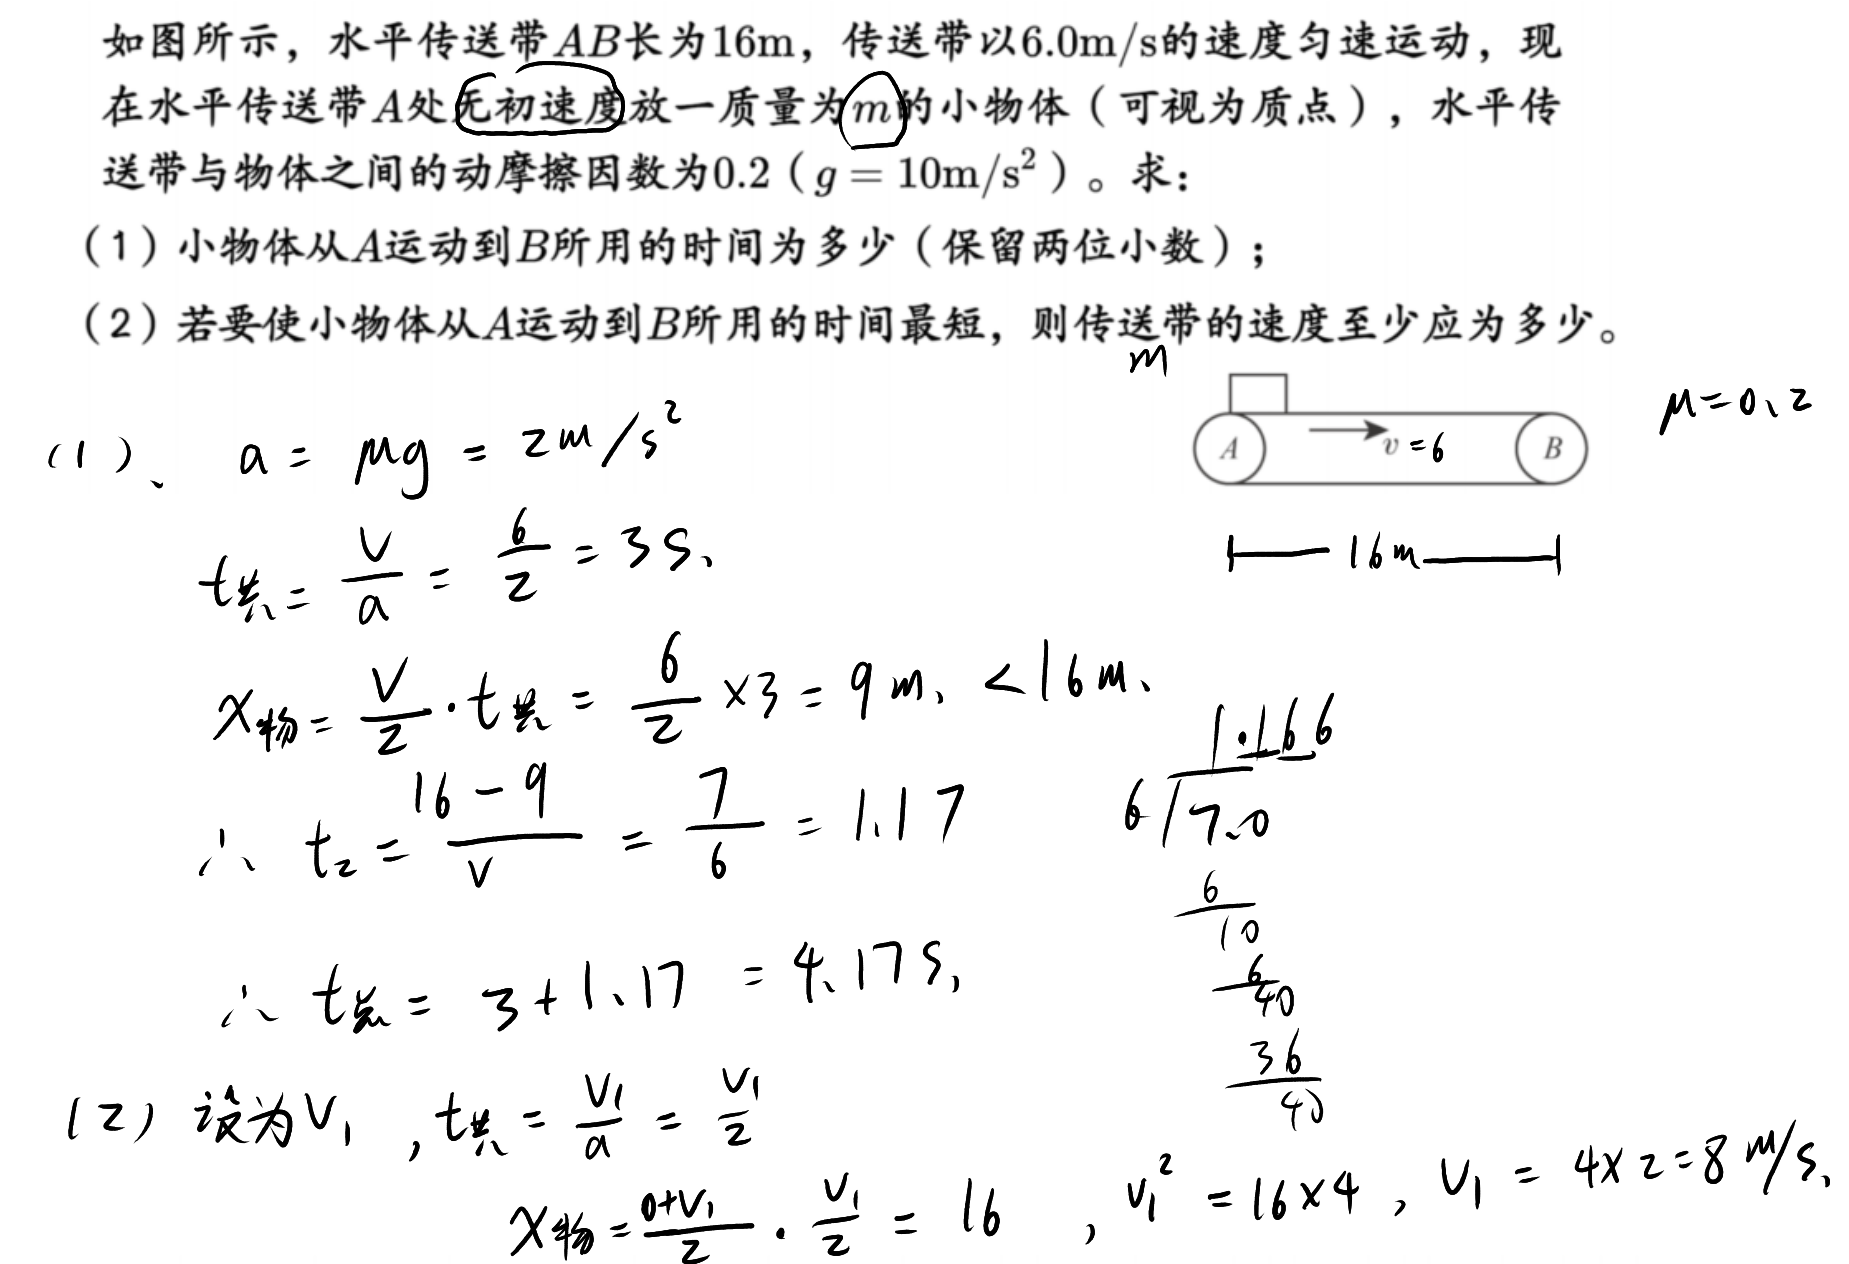 如图所示，水平传送带AB长为16m，传送带以6.0m/s的速度匀速运动，现
在水平传送带A处无初速度放一质量为m的小物体（可视为质点），水平传
送带与物体之间的动摩擦因数为0.2（g = 10m/s²）。求：
（1）小物体从A运动到B所用的时间为多少（保留两位小数）；
（2）若要使小物体从A运动到B所用的时间最短，则传送带的速度至少应为多少。
m
μ=0.2
A v =6 B
16m
(1)、 a = μg = 2m/s²
t共 = v/a = 6/2 = 3s.
x物 = v/2 · t共 = 6/2 ×3 = 9m. <16m.
∴ t₂ = (16-9)/v = 7/6 = 1.17
1.166
6/7.0
6
10
6
40
36
40
∴ t总 = 3+1.17 = 4.17s.
(2) 设为V₁ , t共 = V₁/a = V₁/2
x物 = (0+V₁)/2 · V₁/2 = 16 , V₁² = 16×4 , V₁ = 4×2=8m/s.